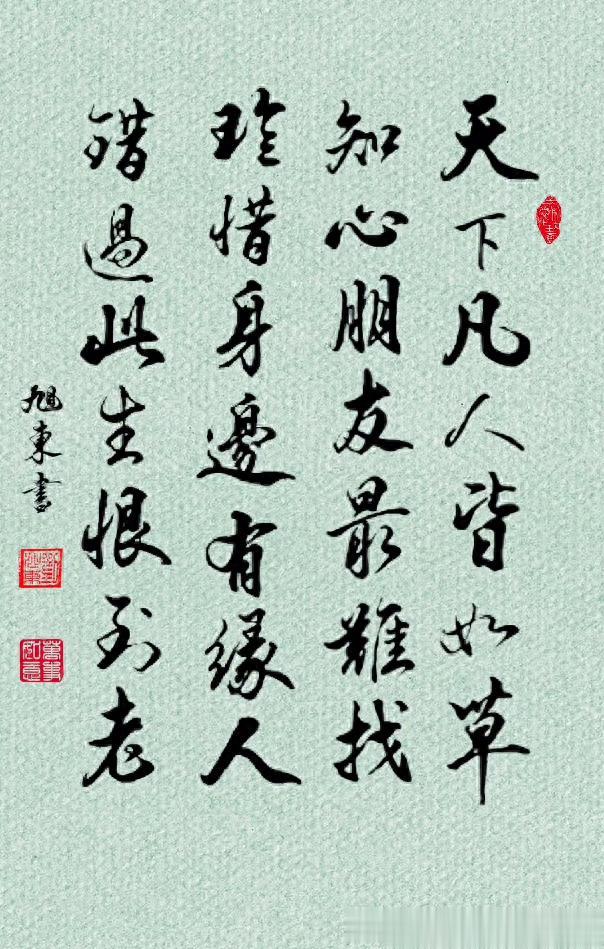 天下凡人皆如草
知心朋友最難找
珍惜身邊有緣人
錯過此生恨到老
旭東書
萬事如意